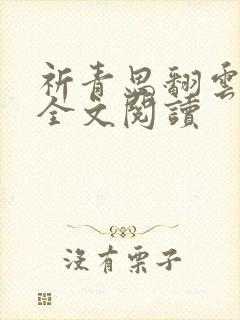 祈青思翻雲
全文閱讀
沒有栗子